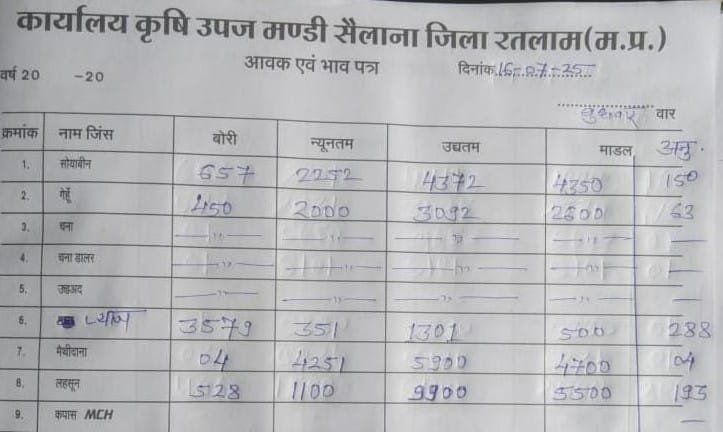 कार्यालय कृषि उपज मण्डी सैलाना जिला रतलाम(म.प्र.)
आवक एवं भाव पत्र
वर्ष 20 -20 दिनांक 16-07-25
बुधवार वार
क्रमांक नाम जिंस बोरी न्यूनतम उच्चतम माडल अनु.
1. सोयाबीन 657 2252 4372 4350 150
2. गेहूँ 450 2000 3092 2600 63
3. चना —,,— —,,— —,,— —,,— —
4. चना डालर —,,— —,,— —,,— —,,— —
5. उड़द —,,— —,,— —,,— —,,— —
6. प्याज 3579 351 1301 500 288
7. मैथीदाना 04 4251 5900 4700 04
8. लहसून 528 1100 9900 5500 195
9. कपास MCH —